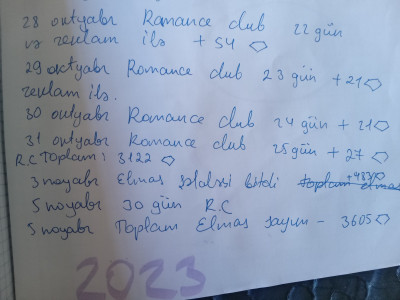 28 oktyabr Romance club 22 gün
və reklam ilə + 54
29 oktyabr Romance club 23 gün + 21
reklam ilə.
30 oktyabr Romance club 24 gün + 21
31 oktyabr Romance club 25 gün + 27
R.C Toplam: 3122
3 noyabr Elmas bitdi +483
5 noyabr 30 gün R.C
5 noyabr Toplam Elmas sayım - 3605
2023